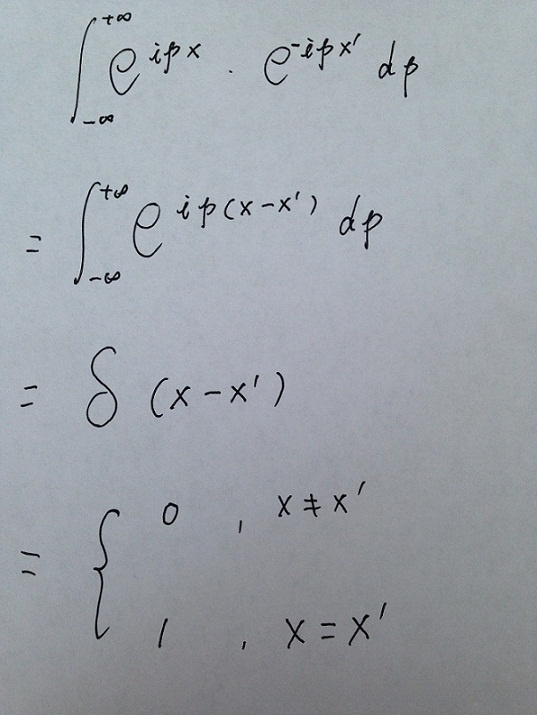 ∫_{-∞}^{+∞} e^{ipx} · e^{-ipx'} dp
= ∫_{-∞}^{+∞} e^{ip(x-x')} dp
= δ (x-x')
= { 0 , x ≠ x'
1 , x = x'